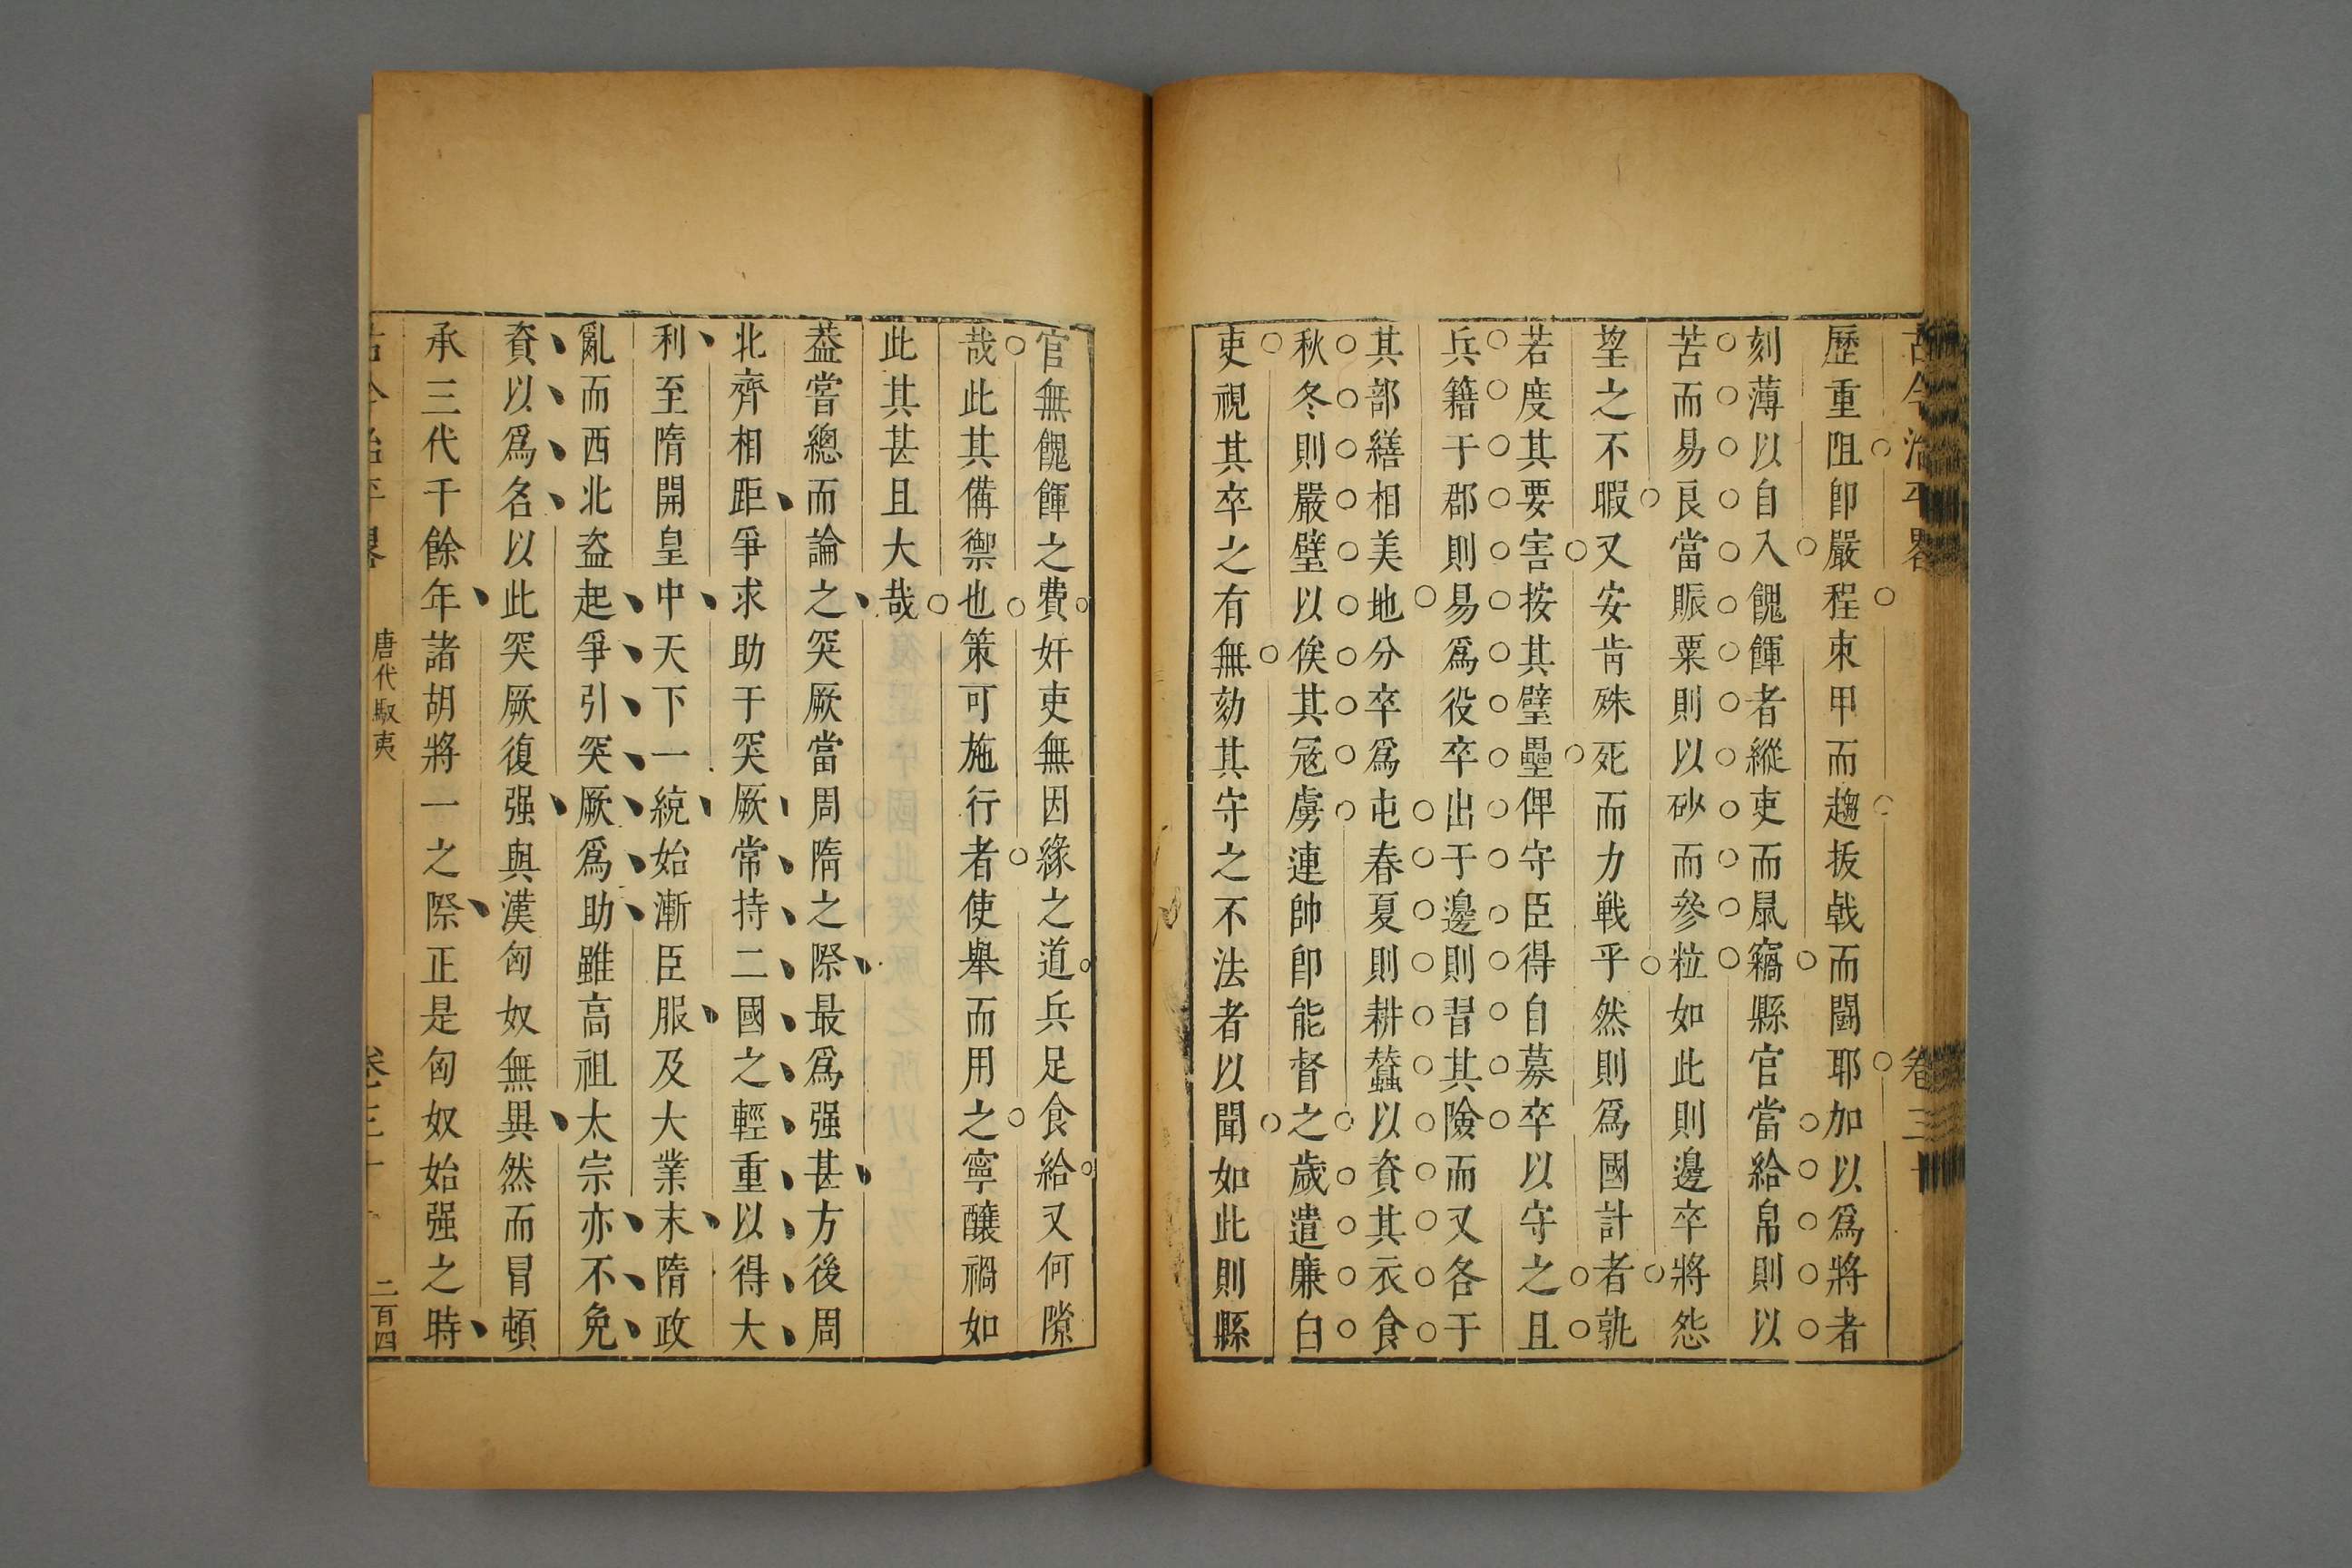 古今治平畧
卷三十
歷重阻卽嚴程束甲而趨扳戟而鬬耶加以爲將者
刻薄以自入餽餫者縱吏而鼠竊縣官當給帛則以
苦而易良當賑粟則以砂而參粒如此則邊卒將怨
望之不暇又安肯殊死而力戰乎然則爲國計者孰
若度其要害按其壁壘俾守臣得自募卒以守之且
兵籍于郡則易爲役卒出于邊則習其險而又各于
其部繕相美地分卒爲屯春夏則耕蠶以資其衣食
秋冬則嚴壁以俟其寇虜連帥卽能督之歲遣廉白
吏視其卒之有無劾其守之不法者以聞如此則縣
官無餽餫之費奸吏無因緣之道兵足食給又何隙
哉此其備禦也策可施行者使舉而用之寧釀禍如
此其甚且大哉
葢嘗總而論之突厥當周隋之際最爲强甚方後周
北齊相距爭求助于突厥常持二國之輕重以得大
利至隋開皇中天下一統始漸臣服及大業末隋政
亂而西北盗起爭引突厥爲助雖高祖太宗亦不免
資以爲名以此突厥復强與漢匈奴無異然而冒頓
承三代千餘年諸胡將一之際正是匈奴始强之時
古今治平畧
唐代馭夷
卷三十
二百四